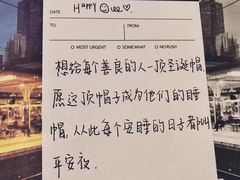 DATE: Happy
TO: FROM:
○ MOST URGENT ○ SOMEWHAT ○ NO RUSH
想给每个善良的人一顶圣诞帽
愿这顶帽子成为他们的睡
帽,从此每个安睡的日子都叫
平安夜.